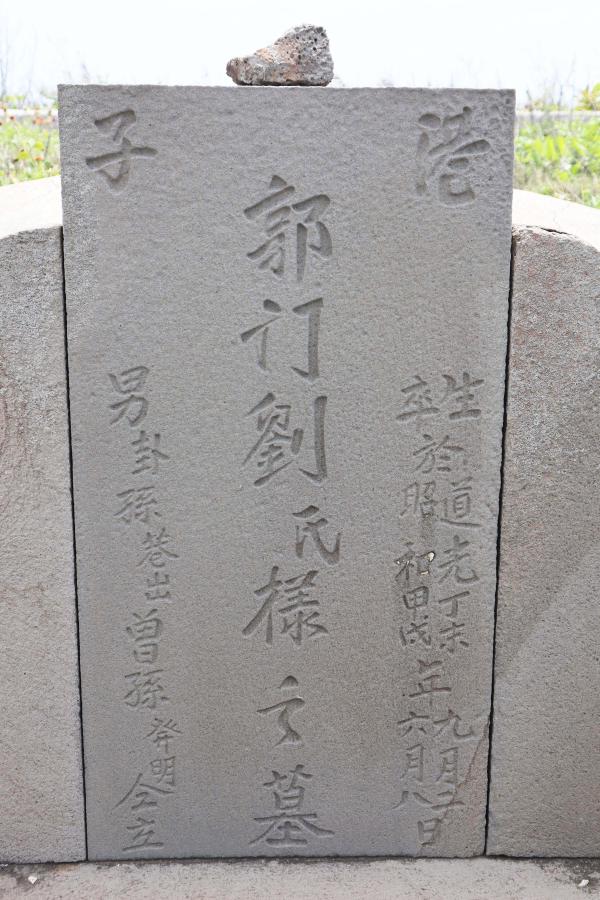 港子
生道光丁未九月
卒於昭和甲戌年六月八日
郭訂劉氏樣之墓
男卦孫巷出曾孫發明仝立